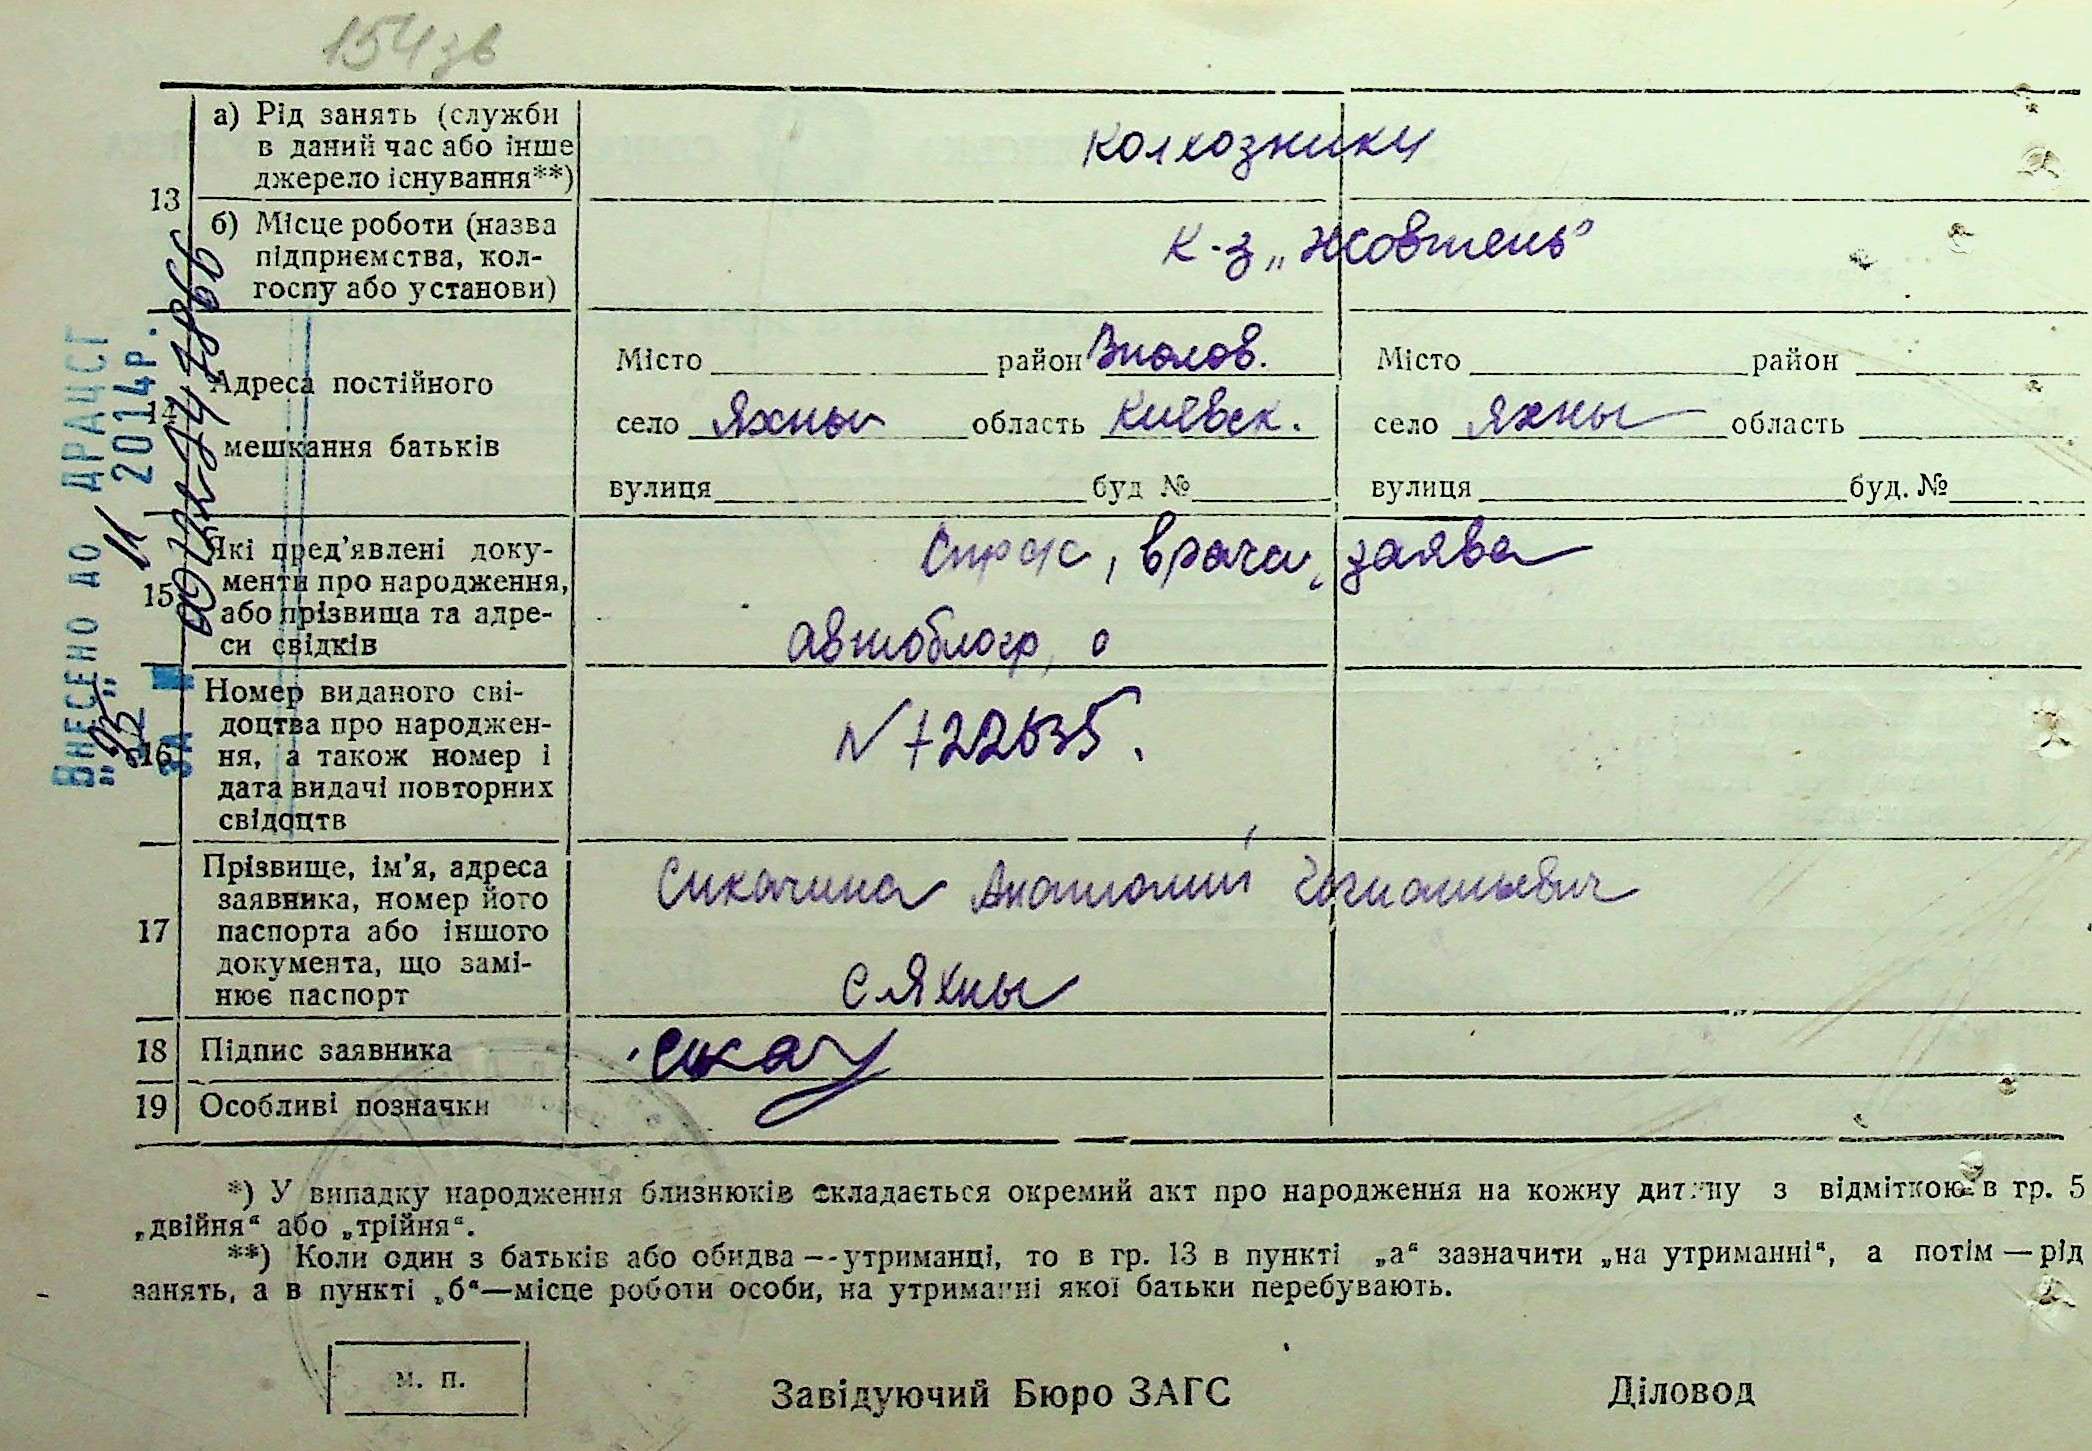 154 зв
а) Рід занять (служби
в даний час або інше
джерело існування**)
колхозники
13
б) Місце роботи (назва
підприємства, кол-
госпу або установи)
к-з „Жовтень"
14
Адреса постійного
мешкання батьків
Місто район село Яхны область Киевск.
вулиця буд №
Місто район
село Яхны область
вулиця буд. №
15
Які пред'явлені доку-
менти про народження,
або прізвища та адре-
си свідків
врача, заява
16
Номер виданого сві-
доцтва про народжен-
ня, а також номер і
дата видачі повторних
свідоцтв
17
Прізвище, ім'я, адреса
заявника, номер його
паспорта або іншого
документа, що замі-
нює паспорт
Сикачина Анатолий
с Яхны
18 Підпис заявника
19 Особливі позначки
*) У випадку народження близнюків складається окремий акт про народження на кожну дитину з відміткою в гр. 5
„двійня“ або „трійня“.
**) Коли один з батьків або обидва —утриманці, то в гр. 13 в пункті „а“ зазначити „на утриманні“, а потім — рід
занять, а в пункті „б“—місце роботи особи, на утриманні якої батьки перебувають.
м. п.
Завідуючий Бюро ЗАГС
Діловод
Внесено до ДРАЦСГ
11 2014р.
ЗА